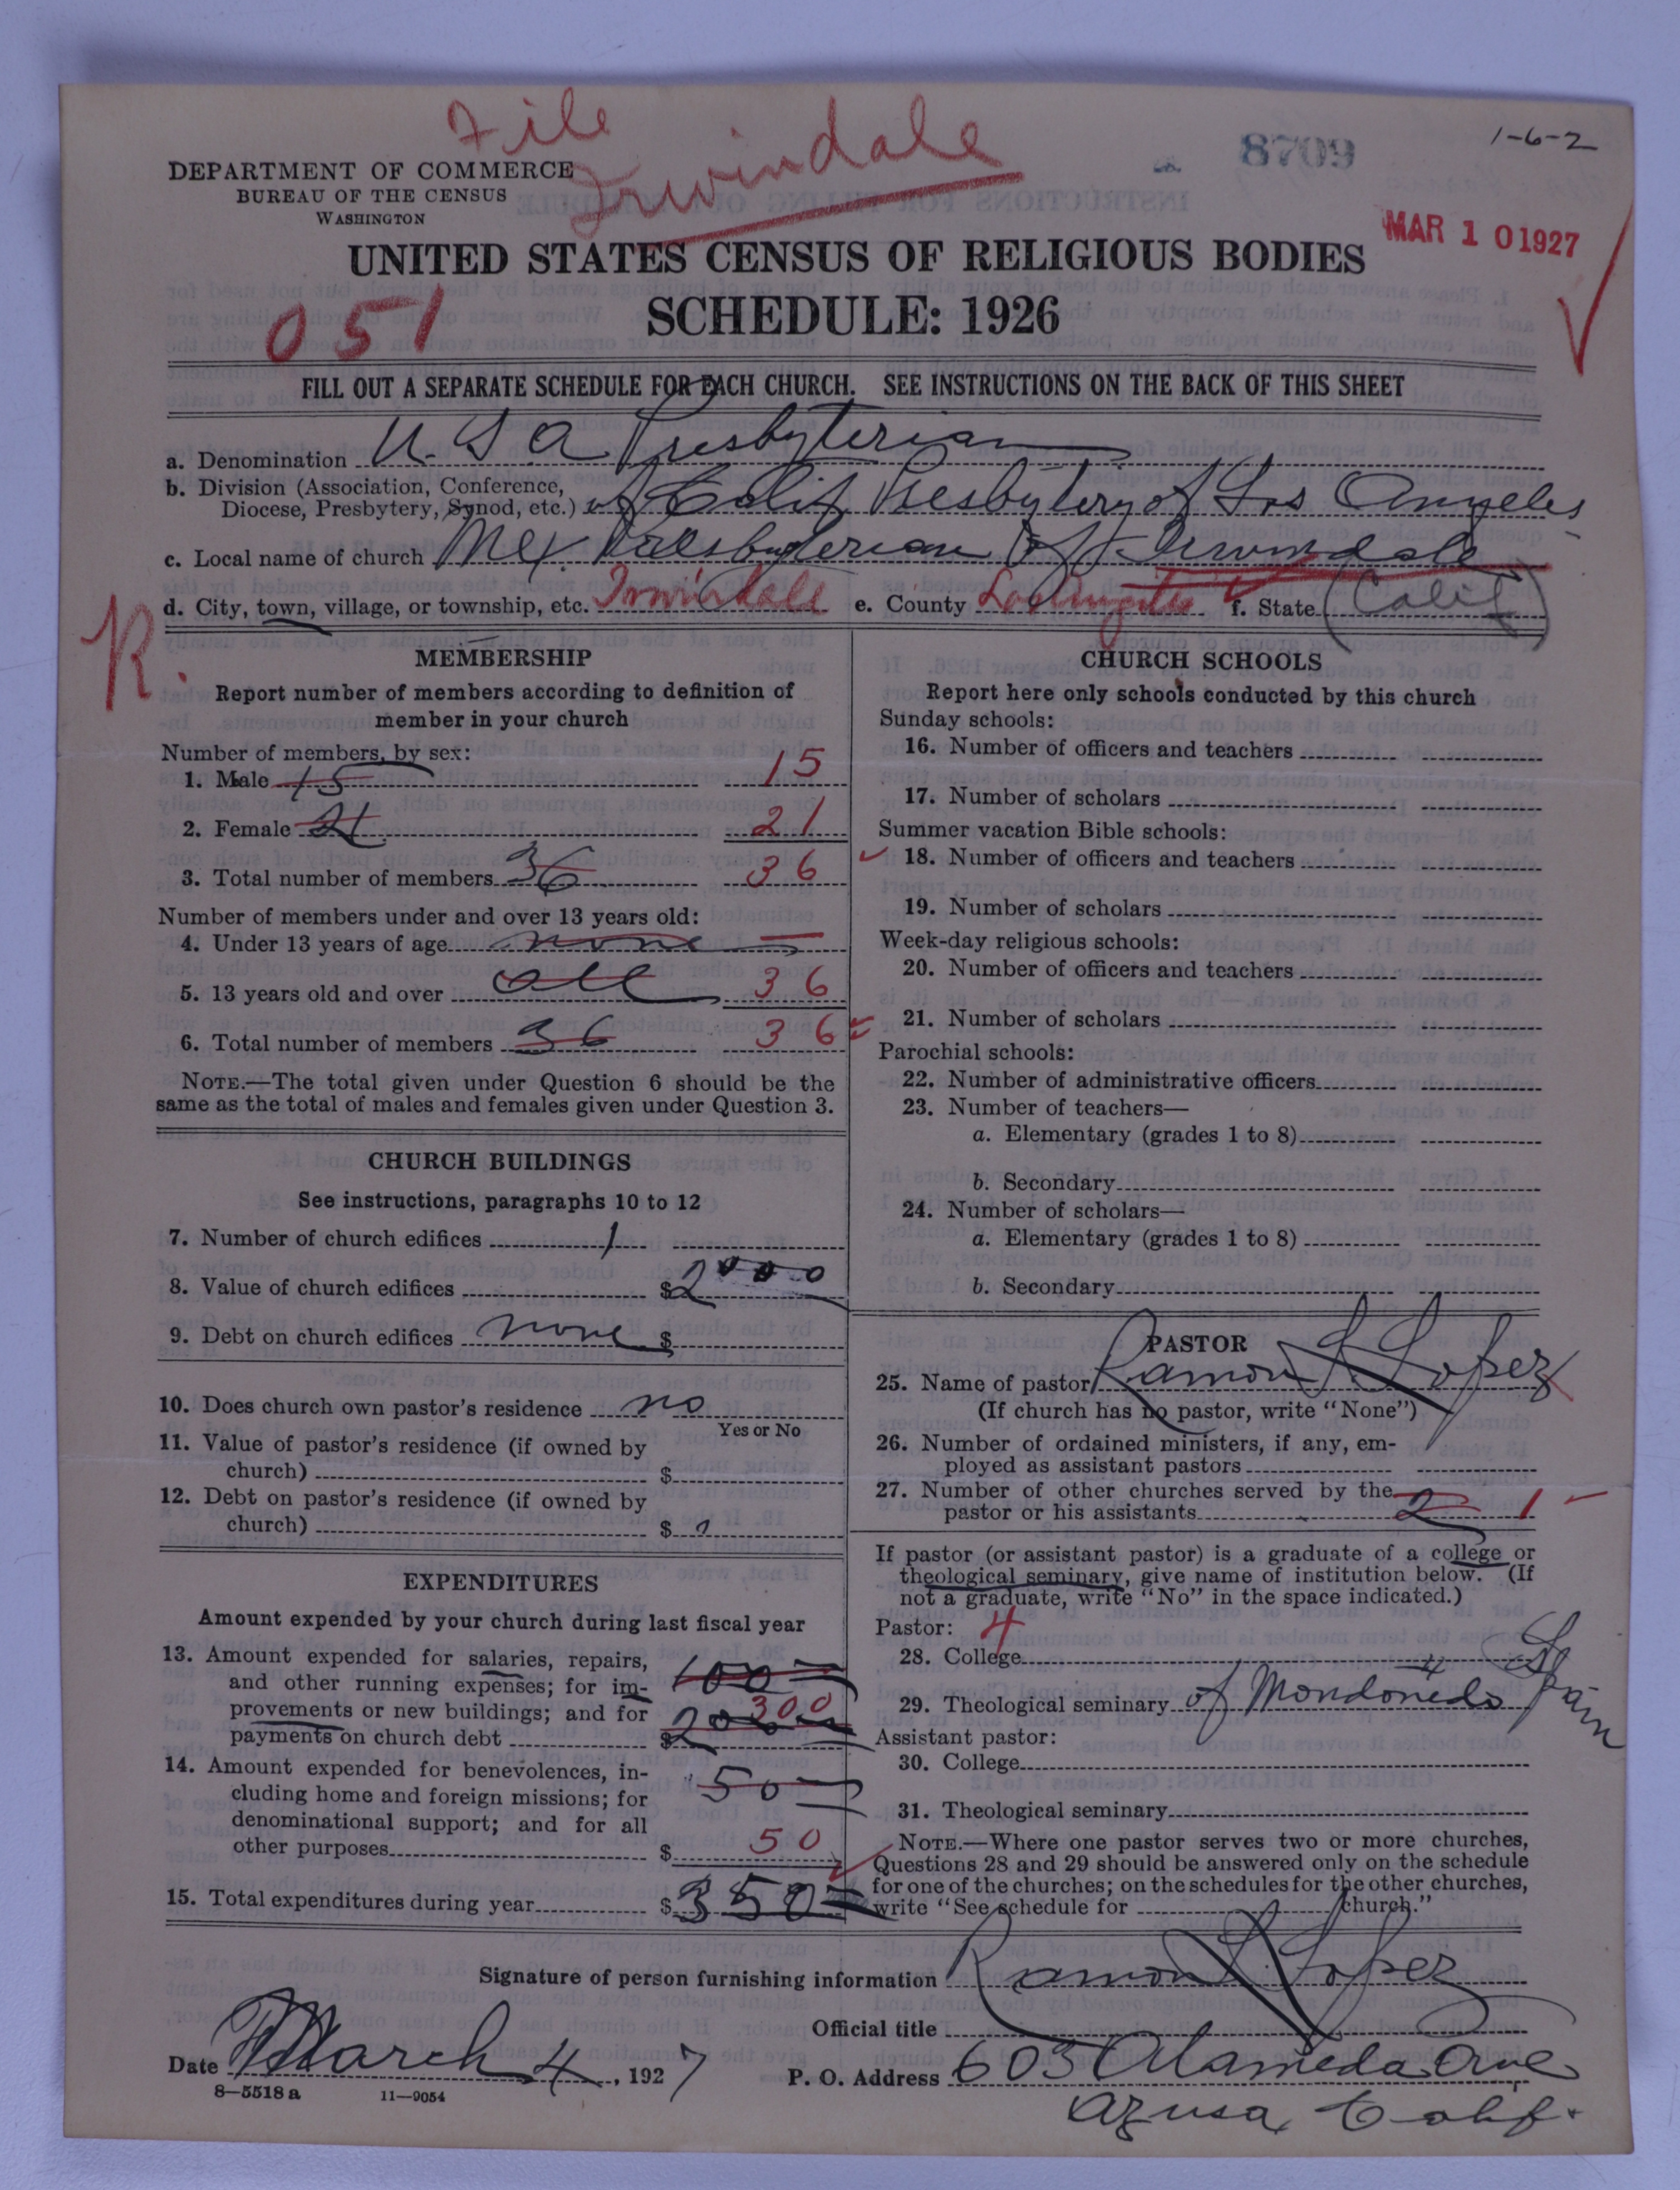 File
Irwindale
8709
1-6-2
DEPARTMENT OF COMMERCE
BUREAU OF THE CENSUS
WASHINGTON
MAR 10 1927
UNITED STATES CENSUS OF RELIGIOUS BODIES
SCHEDULE: 1926
051
FILL OUT A SEPARATE SCHEDULE FOR EACH CHURCH. SEE INSTRUCTIONS ON THE BACK OF THIS SHEET
a. Denomination U.S.A Presbyterian
b. Division (Association, Conference,
Diocese, Presbytery, Synod, etc.) of Calif Presbytery of Los Angeles
c. Local name of church Mex. Presbyterian of Irwindale
d. City, town, village, or township, etc. Irwindale e. County Los Angeles f. State (Calif)
R.
MEMBERSHIP
Report number of members according to definition of
member in your church
Number of members, by sex:
1. Male 15 15
2. Female 21 21
3. Total number of members 36 36
Number of members under and over 13 years old:
4. Under 13 years of age none —
5. 13 years old and over all 36
6. Total number of members 36 36
NOTE.—The total given under Question 6 should be the
same as the total of males and females given under Question 3.
CHURCH BUILDINGS
See instructions, paragraphs 10 to 12
7. Number of church edifices 1
8. Value of church edifices $2000
9. Debt on church edifices none $
10. Does church own pastor's residence no
Yes or No
11. Value of pastor's residence (if owned by
church) $
12. Debt on pastor's residence (if owned by
church) $
EXPENDITURES
Amount expended by your church during last fiscal year
13. Amount expended for salaries, repairs,
and other running expenses; for im- 100
provements or new buildings; and for 300
payments on church debt $200
14. Amount expended for benevolences, in-
cluding home and foreign missions; for 50
denominational support; and for all
other purposes $ 50
15. Total expenditures during year $350
CHURCH SCHOOLS
Report here only schools conducted by this church
Sunday schools:
16. Number of officers and teachers
17. Number of scholars
Summer vacation Bible schools:
18. Number of officers and teachers
19. Number of scholars
Week-day religious schools:
20. Number of officers and teachers
21. Number of scholars
Parochial schools:
22. Number of administrative officers
23. Number of teachers—
a. Elementary (grades 1 to 8)
b. Secondary
24. Number of scholars—
a. Elementary (grades 1 to 8)
b. Secondary
PASTOR
25. Name of pastor Ramon L. Lopez
(If church has no pastor, write "None")
26. Number of ordained ministers, if any, em-
ployed as assistant pastors
27. Number of other churches served by the
pastor or his assistants 2 1
If pastor (or assistant pastor) is a graduate of a college or
theological seminary, give name of institution below. (If
not a graduate, write "No" in the space indicated.)
Pastor: 4
28. College
29. Theological seminary of Mondoñedo Spain
Assistant pastor:
30. College
31. Theological seminary
NOTE.—Where one pastor serves two or more churches,
Questions 28 and 29 should be answered only on the schedule
for one of the churches; on the schedules for the other churches,
write "See schedule for church."
Signature of person furnishing information Ramon L. Lopez
Official title
Date March 4, 1927
P. O. Address 603 Alameda Ave
Azusa, Calif.
8—5518 a 11—9054